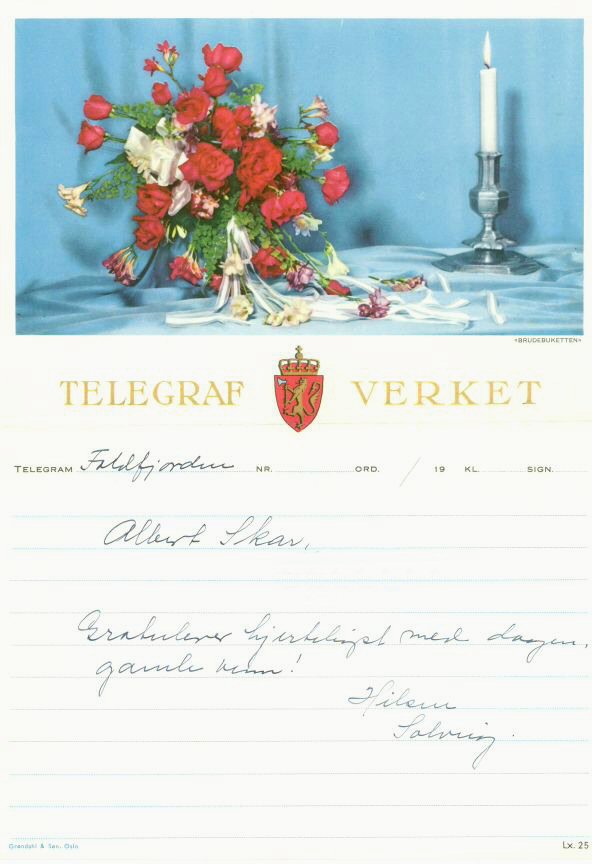 «BRUDEBUKETTEN»
TELEGRAF VERKET
TELEGRAM Foldfjorden NR. ORD. / 19 KL. SIGN.
Albert Skar,
Gratulerer hjerteligst med dagen,
gamle venn!
Hilsen
Solveig.
Grøndahl & Søn, Oslo
Lx. 25